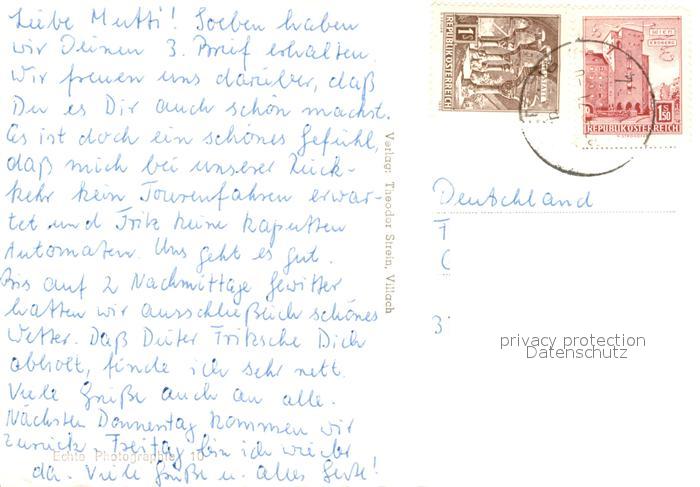 Liebe Mutti! Soeben haben
wir Deinen 3. Brief erhalten.
Wir freuen uns darüber, daß
Du es Dir auch schön machst.
Es ist doch ein schönes Gefühl,
daß mich bei unserer Rück-
kehr kein Tourenfahren erwar-
tet und Fritz keine kaputten
Automaten. Uns geht es gut.
Bis auf 2 Nachmittage Gewitter
hatten wir ausschließlich schönes
Wetter. Daß Dieter Fritzsche Dich
abholt, finde ich sehr nett.
Viele Grüße auch an alle.
Nächsten Donnerstag kommen wir
zurück Freitag bin ich wieder
da. Viele Grüße u. alles Gute!
Echte Photographie 10
Verlag: Theodor Strein, Villach
1S
REPUBLIK ÖSTERREICH
1.50
REPUBLIK ÖSTERREICH
Deutschland
F
3
privacy protection
Datenschutz